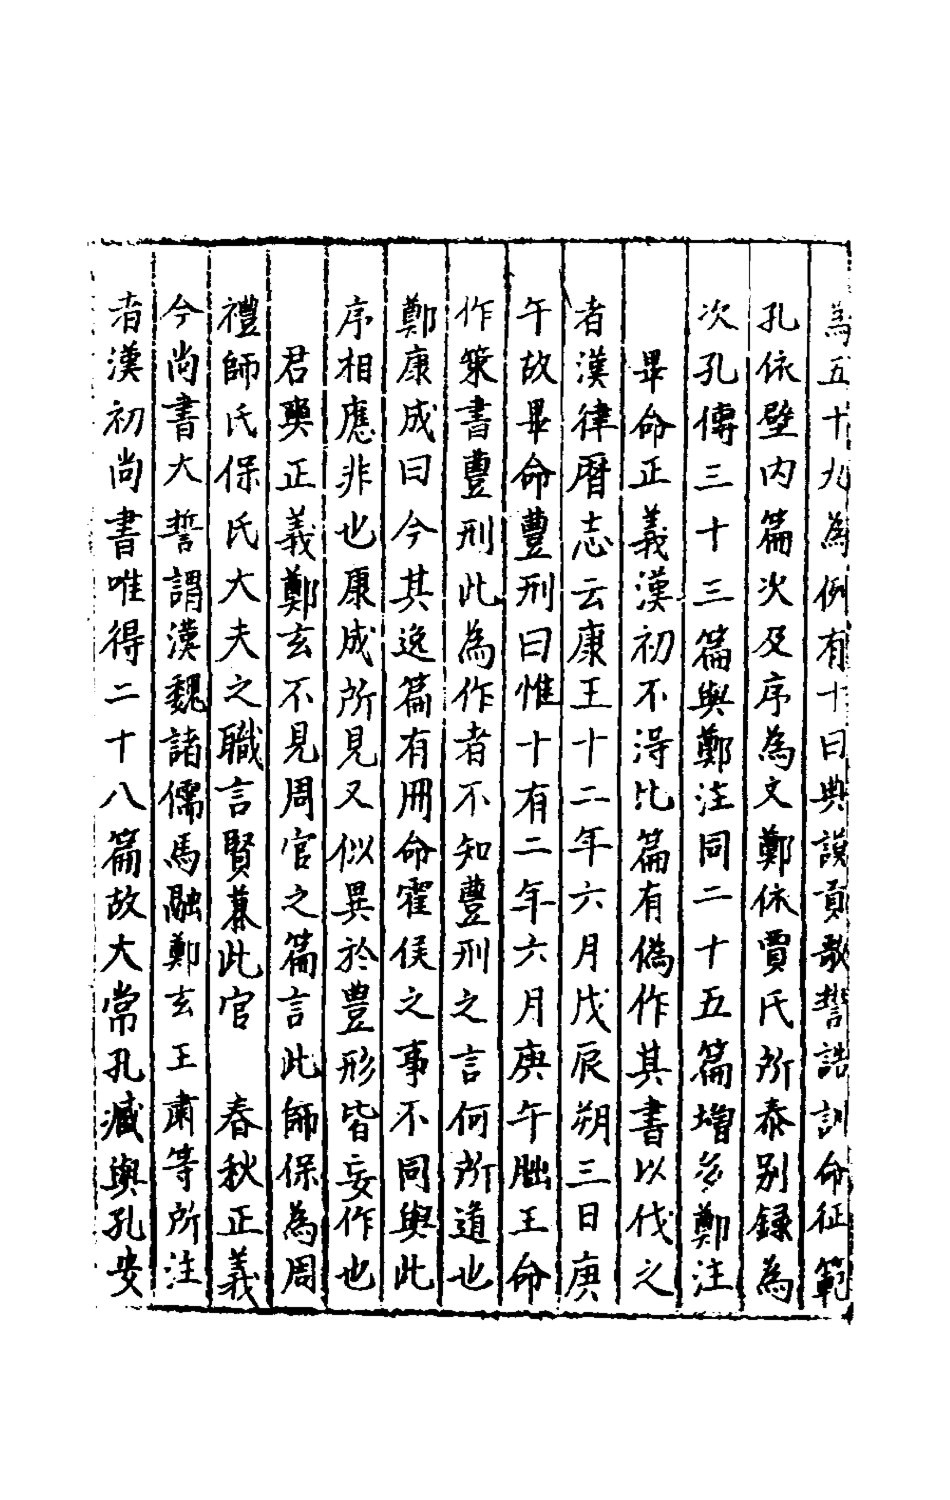 為五十九為例有十曰典謨貢歌誓誥訓命征範
孔依壁内篇次及序為文鄭依賈氏所奏别録為
次孔傳三十三篇與鄭注同二十五篇增多鄭注
畢命正義漢初不得比篇有偽作其書以伐之
者漢律曆志云康王十二年六月戊辰朔三日庚
午故畢命豐刑曰惟十有二年六月庚午朏王命
作策書豐刑此為作者不知豐刑之言何所道也
鄭康成曰今其逸篇有冊命霍侯之事不同與此
序相應非也康成所見又似異於豐形皆妄作也
君奭正義鄭玄不見周官之篇言此師保為周
禮師氏保氏大夫之職言賢幕此官　春秋正義
今尚書大誓謂漢魏諸儒馬融鄭玄王肅等所注
者漢初尚書唯得二十八篇故大常孔臧與孔安